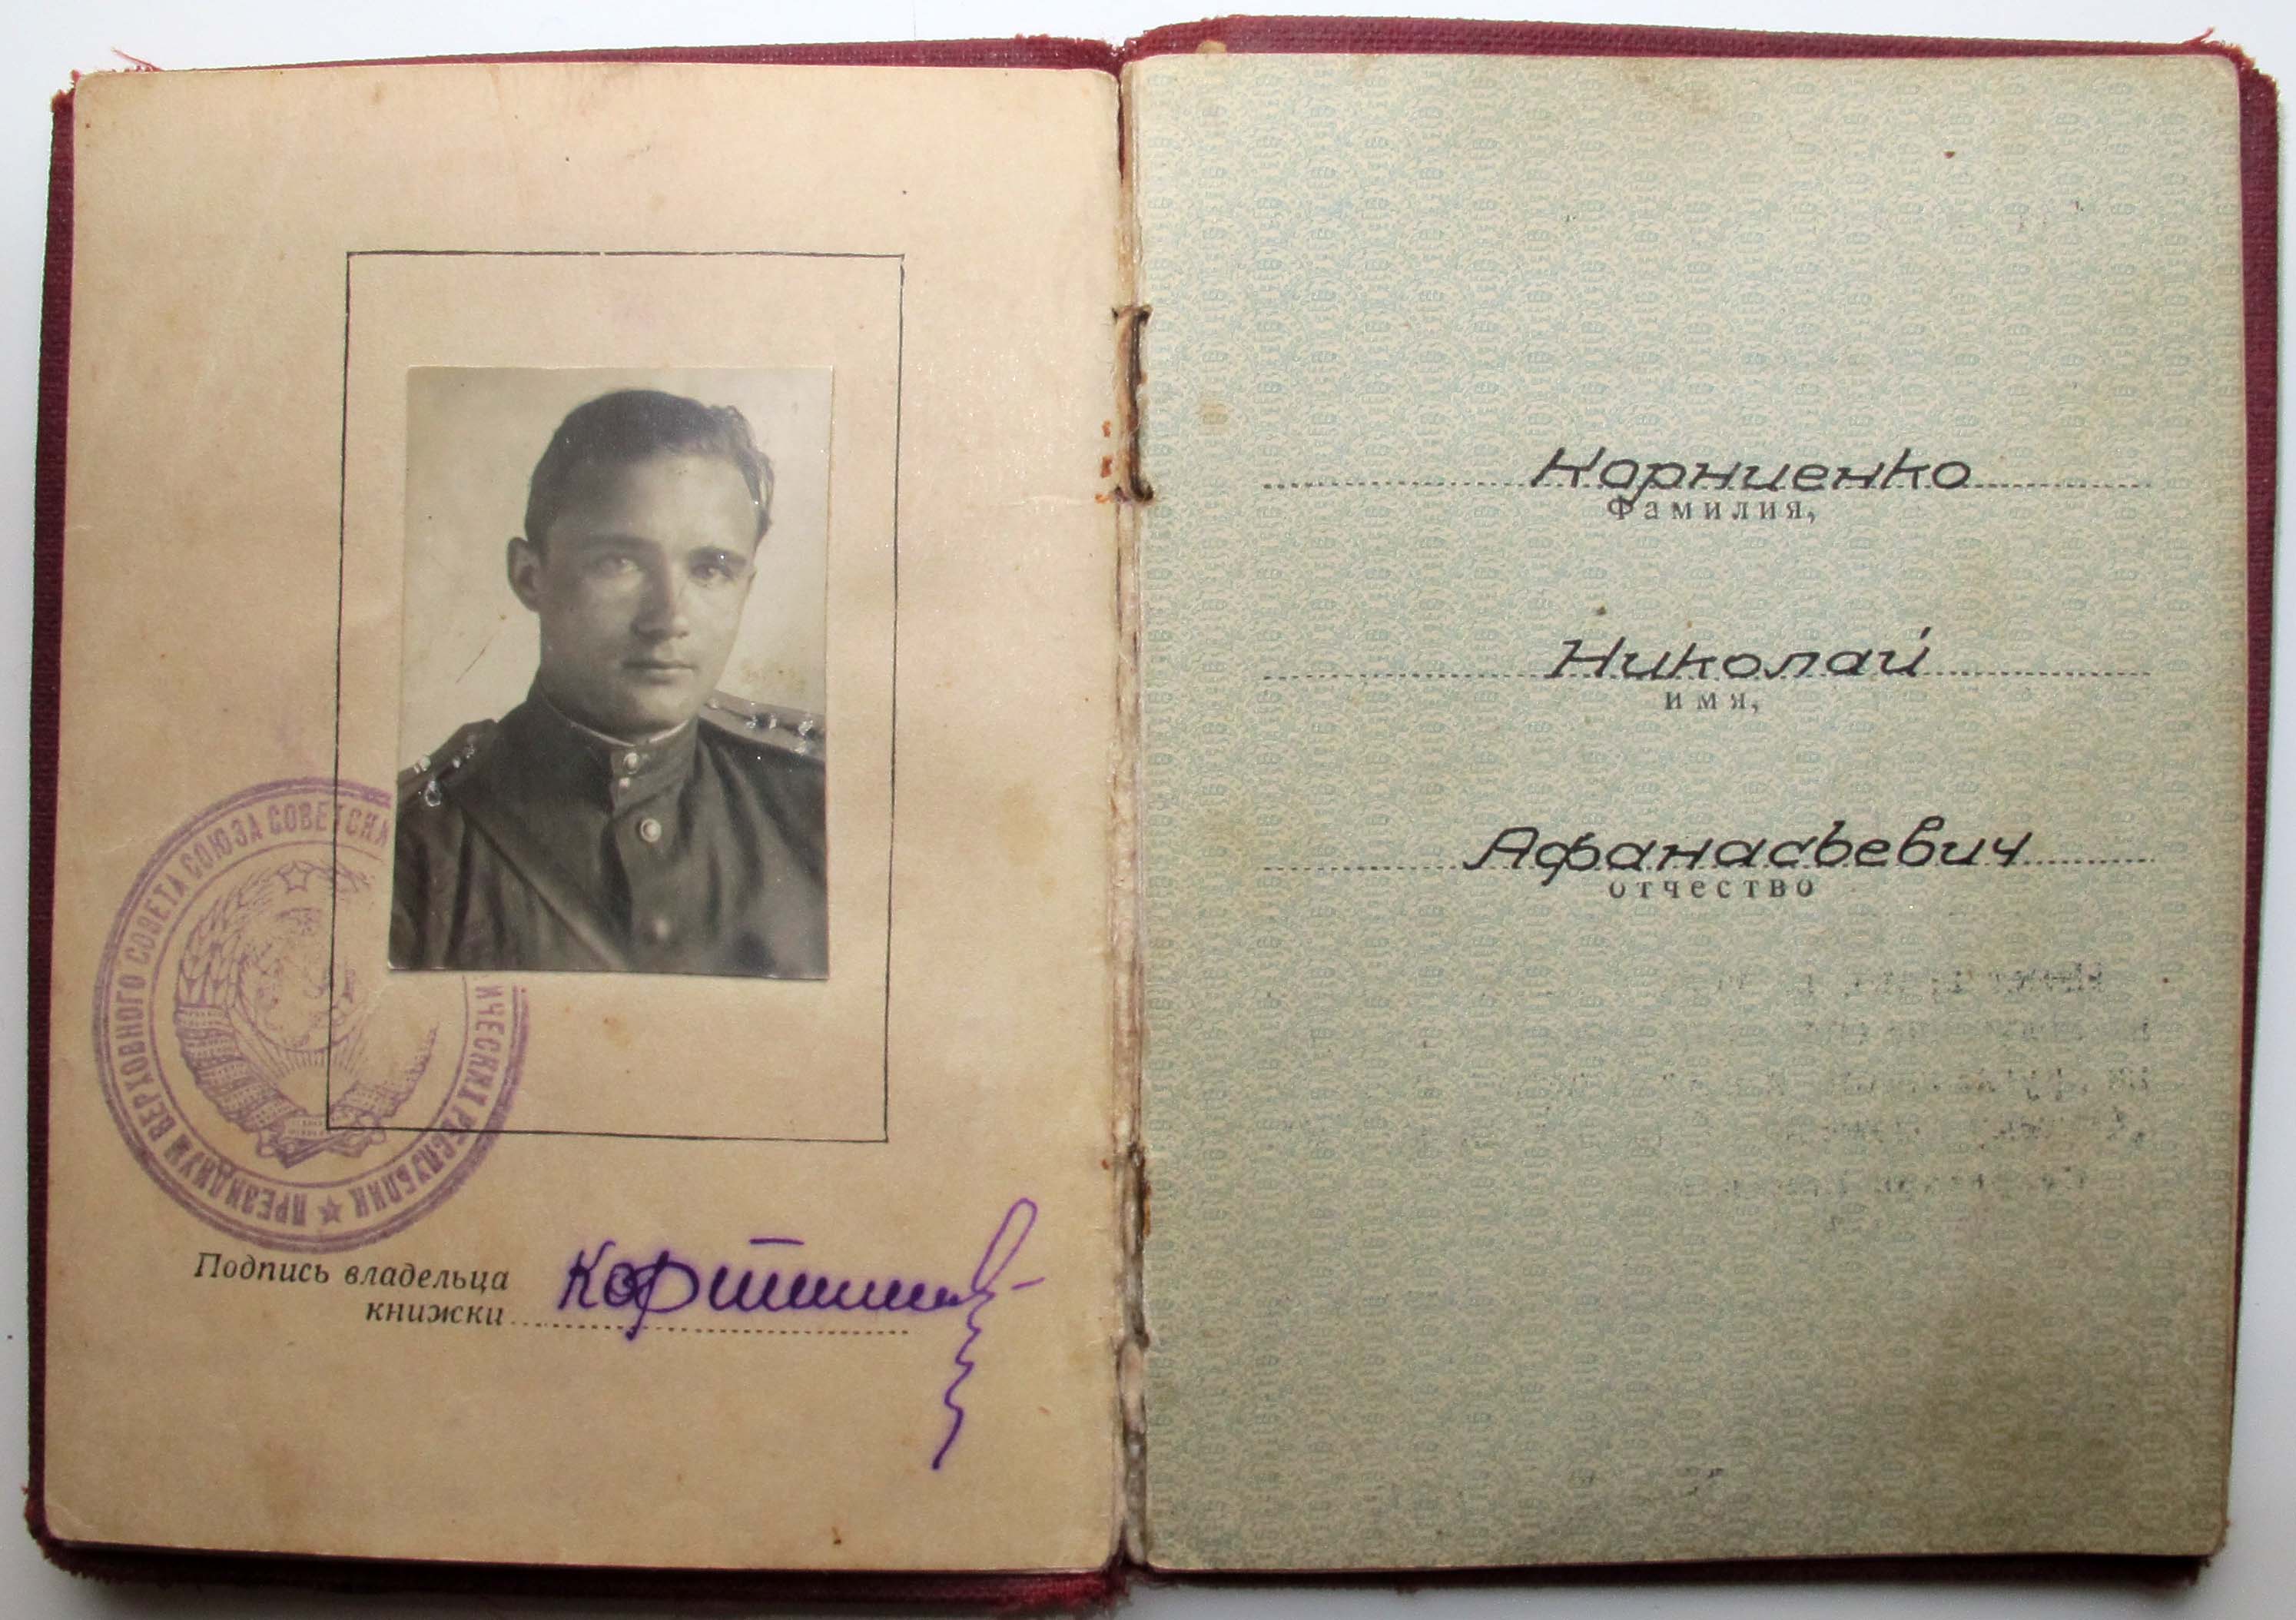 ПРЕЗИДИУМ ВЕРХОВНОГО СОВЕТА СОЮЗА СОВЕТСКИ
ИЧЕСКИХ РЕСПУБЛИК
Подпись владельца
книжки
Корниенко
фамилия,
Николай
имя,
Афанасьевич
отчество